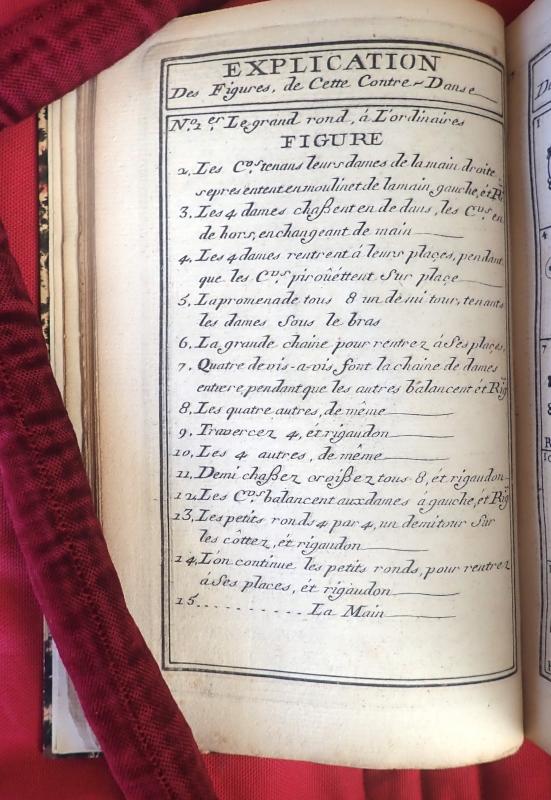 EXPLICATION
Des Figures, de Cette Contre-Danse
No. 1.er Le grand rond, á L'ordinaires
FIGURE
2, Les C.rs tenans leurs dames de la main droite
se presentent en moulinet de la main gauche, ét R
3, Les 4 dames chaßent en de dans, les C.rs en
de hors, en changeant de main
4, Les 4 dames rentrent á leurs plaçes, pendant
que les C.rs piroûéttent sur plaçe
5, La promenade tous 8 un demi tour, tenants
les dames sous le bras
6, La grande chaine pour rentrez á ses plaçes,
7, Quatre de vis-a-vis, font la chaine de dames
entiere, pendant que les autres balancent ét Rig
8, Les quatre autres, de même
9, Travercez 4, ét rigaudon
10, Les 4 autres, de même
11, Demi chaßez croißez tous 8, ét rigaudon
12, Les C.rs balancent aux dames á gauche, ét Rig
13, Les petits ronds 4 par 4, un demi tour sur
les côttez, ét rigaudon
14, L'on continue les petits ronds, pour rentrez
á ses places, ét rigaudon
15. . . . . . . . . . . La Main